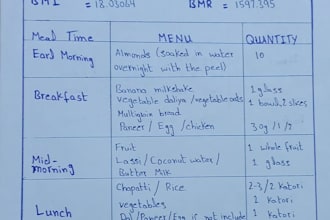 BMI = 18.03064 BMR = 1597.395
Meal Time MENU QUANTITY
Earl Morning Almonds (soaked in water 10
overnight with the peel)
Breakfast Banana milkshake 1 glass
vegetable daliya / vegetable oats 1 bowl, 2 slices
Multigrain bread
Paneer / Egg / chicken 30g / 1 / 
Fruit 1 whole fruit
Mid- Lassi / Coconut water / 1 glass
morning Butter Milk
Chapatti / Rice 2-3/2 katori
Lunch vegetables 1 katori
Dal / Paneer / Egg is not include 1 katori